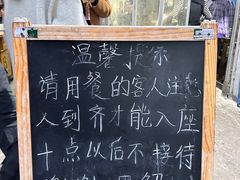 温馨提示
请用餐的客人注意
人到齐才能入座
十点以后不接待